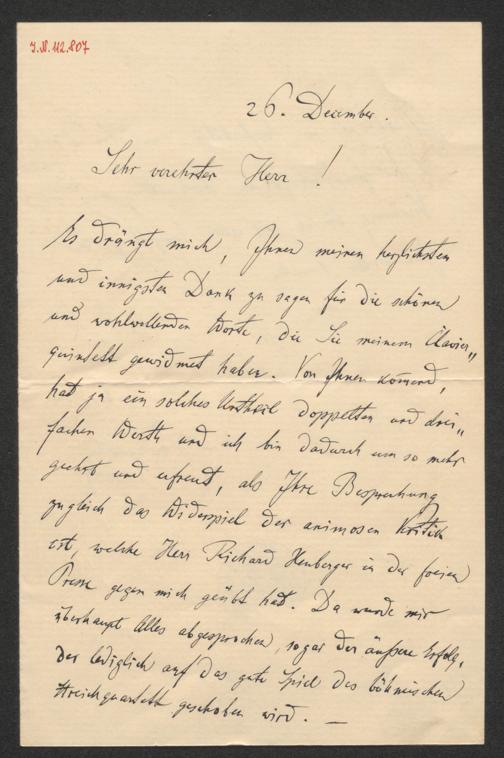 J.N. 112.807
26. December.
Sehr verehrter Herr !
Es drängt mich, Ihnen meinen herzlichsten
und innigsten Dank zu sagen für die schönen
und wohlwollenden Worte, die Sie meinem Clavier„
quintett gewidmet haben. Von Ihnen komend,
hat ja ein solches Urtheil doppelten und drei„
fachen Werth und ich bin dadurch um so mehr
geehrt und erfreut, als Ihre Besprechung
zugleich das Widerspiel der animosen Kritik
ist, welche Herr Richard Heuberger in der freien
Presse gegen mich geübt hat. Da wurde mir
überhaupt Alles abgesprochen, sogar der äußere Erfolg,
der lediglich auf das gute Spiel des böhmischen
Streichquartett geschoben wird. —